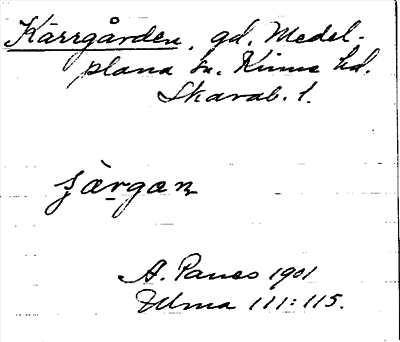 Kärrgården, gd, Medel-
plana sn. Kinne hd.
Skarab. l.
särgan
A. Panes 1901
Ulma 111:115.